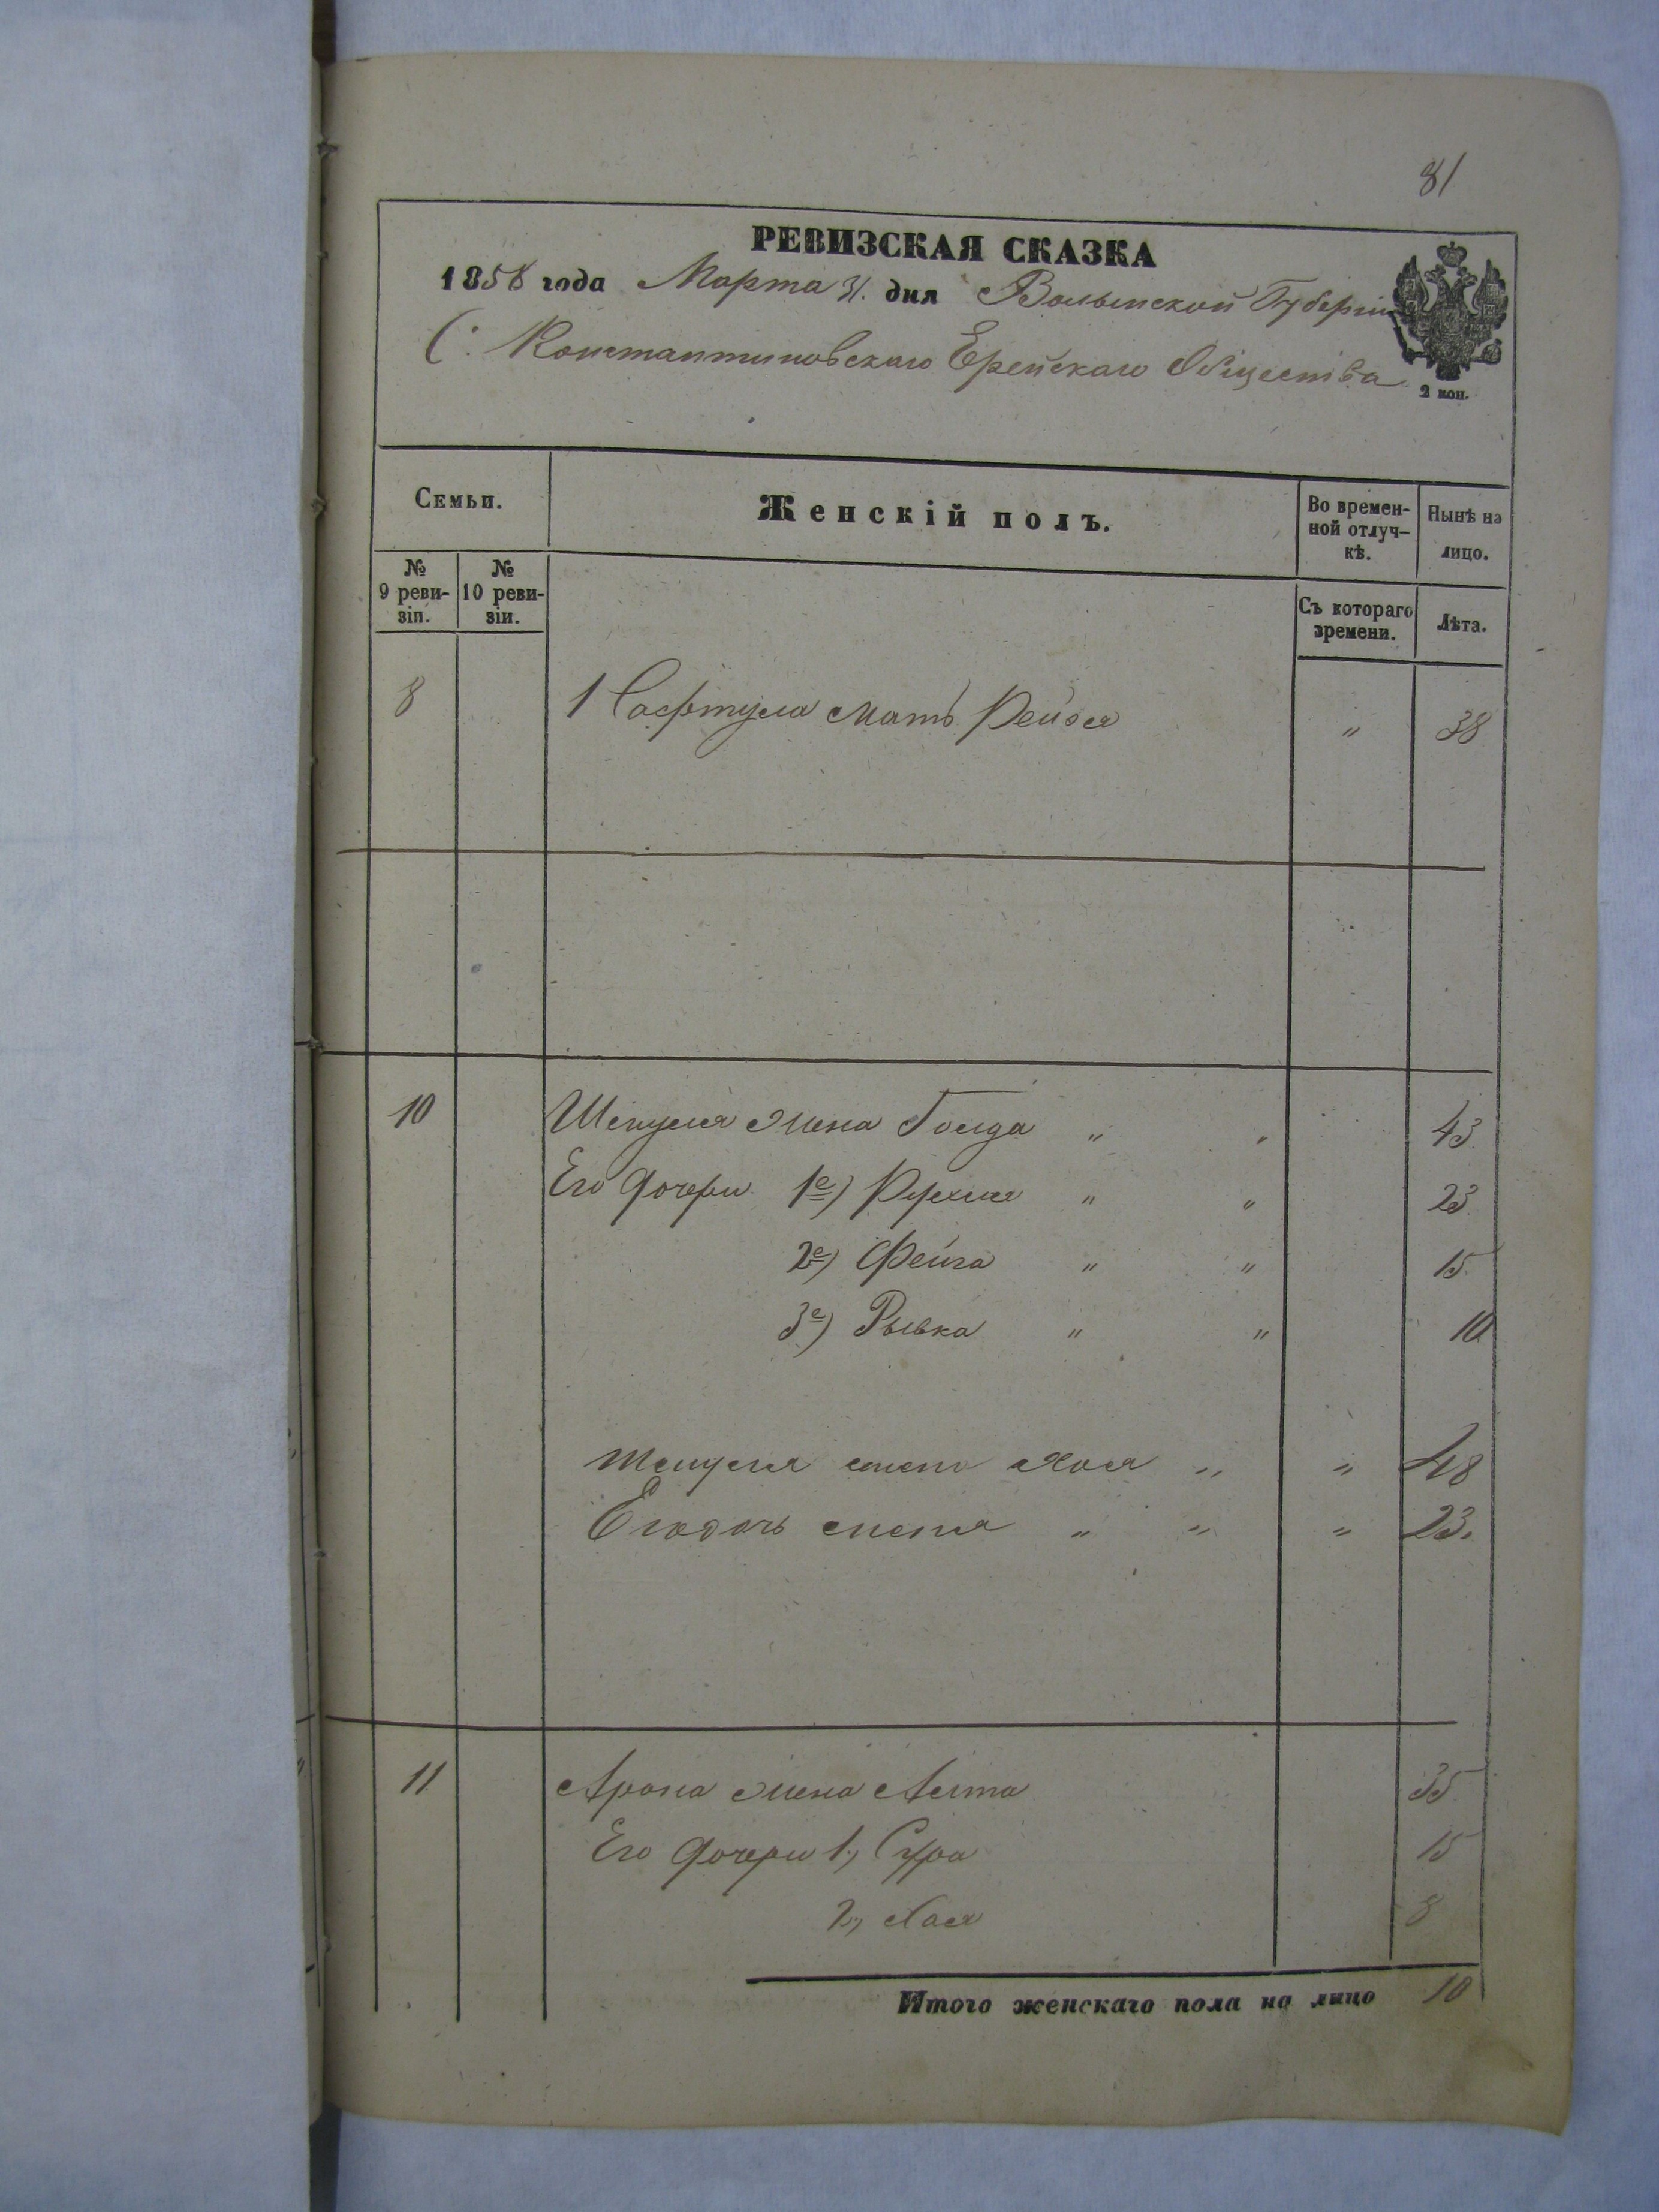 81
РЕВИЗСКАЯ СКАЗКА
1858 года Марта 31. дня Волынской Губерніи
С: Константиновскаго Ерейскаго Общества
2 коп.
Семьи.
Женскій полъ.
Во времен-
ной отлуч-
кѣ.
Нынѣ на
лицо.
№
9 реви-
зіи.
№
10 реви-
зіи.
Съ котораго
времени.
Лѣта.
8 1 мать Рейзя " 38
10 жена Голда " " 43
Его дочери 1е) Рухля " " 23
2е) Фейга " " 15
3е) Рывка " " 10
Хая " " 48
Его дочь " " " 23.
11 Арона жена Алта 35
Его дочери 1., Сура 15
2., Хая 8
Итого женскаго пола на лицо 10